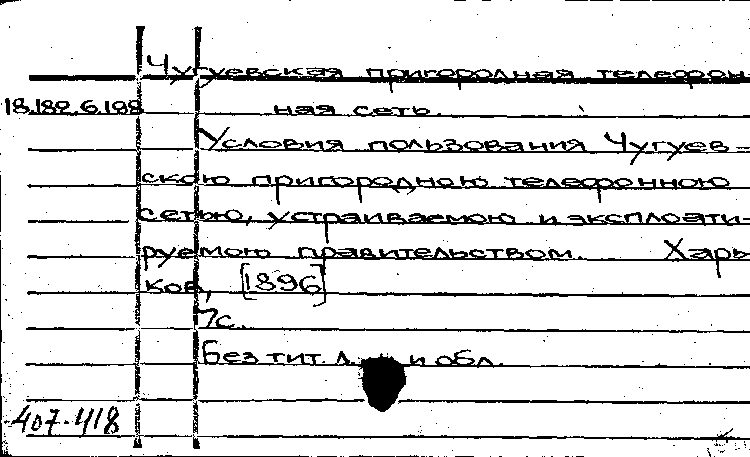 Чугуевская пригородная телефон
18.182.6.198 ная сеть.
Условия пользования Чугуев-
скою пригородною телефонною
сетью, устраиваемою и эксплоати-
руемою правительством. Харь
ков, [1896]
7с.
Без тит. л. и обл.
407-418